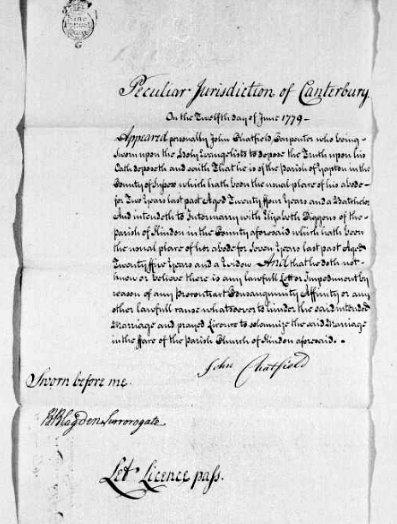 Peculiar Jurisdiction of Canterbury
On the Twelfth day of June 1779 -
Appeared personally John Chatfield, Carpenter who being
Sworn upon the Holy Evangelists to depose the Truth upon his
Oath deposeth and saith That he is of the Parish of Yapton in the
County of Sussex which hath been the usual place of his abode
for Two Years last past Aged Twenty four Years and a Batchelor
And intendeth to Intermarry with Elizabeth Diggens of the
parish of Slindon in the County aforesaid which hath been
the usual place of her abode for Seven Years last past Aged
Twenty five Years and a Widow And that he doth not
know or believe there is any lawfull Lett or Impediment by
reason of any Precontract Consanguinity Affinity or any
other lawfull cause whatsoever to hinder the said intended
Marriage and prayed Licence to solemnize the said Marriage
in the face of the Parish Church of Slindon aforesaid. -
John Chatfield
Sworn before me
Blagden Surrogate
Let Licence pass.